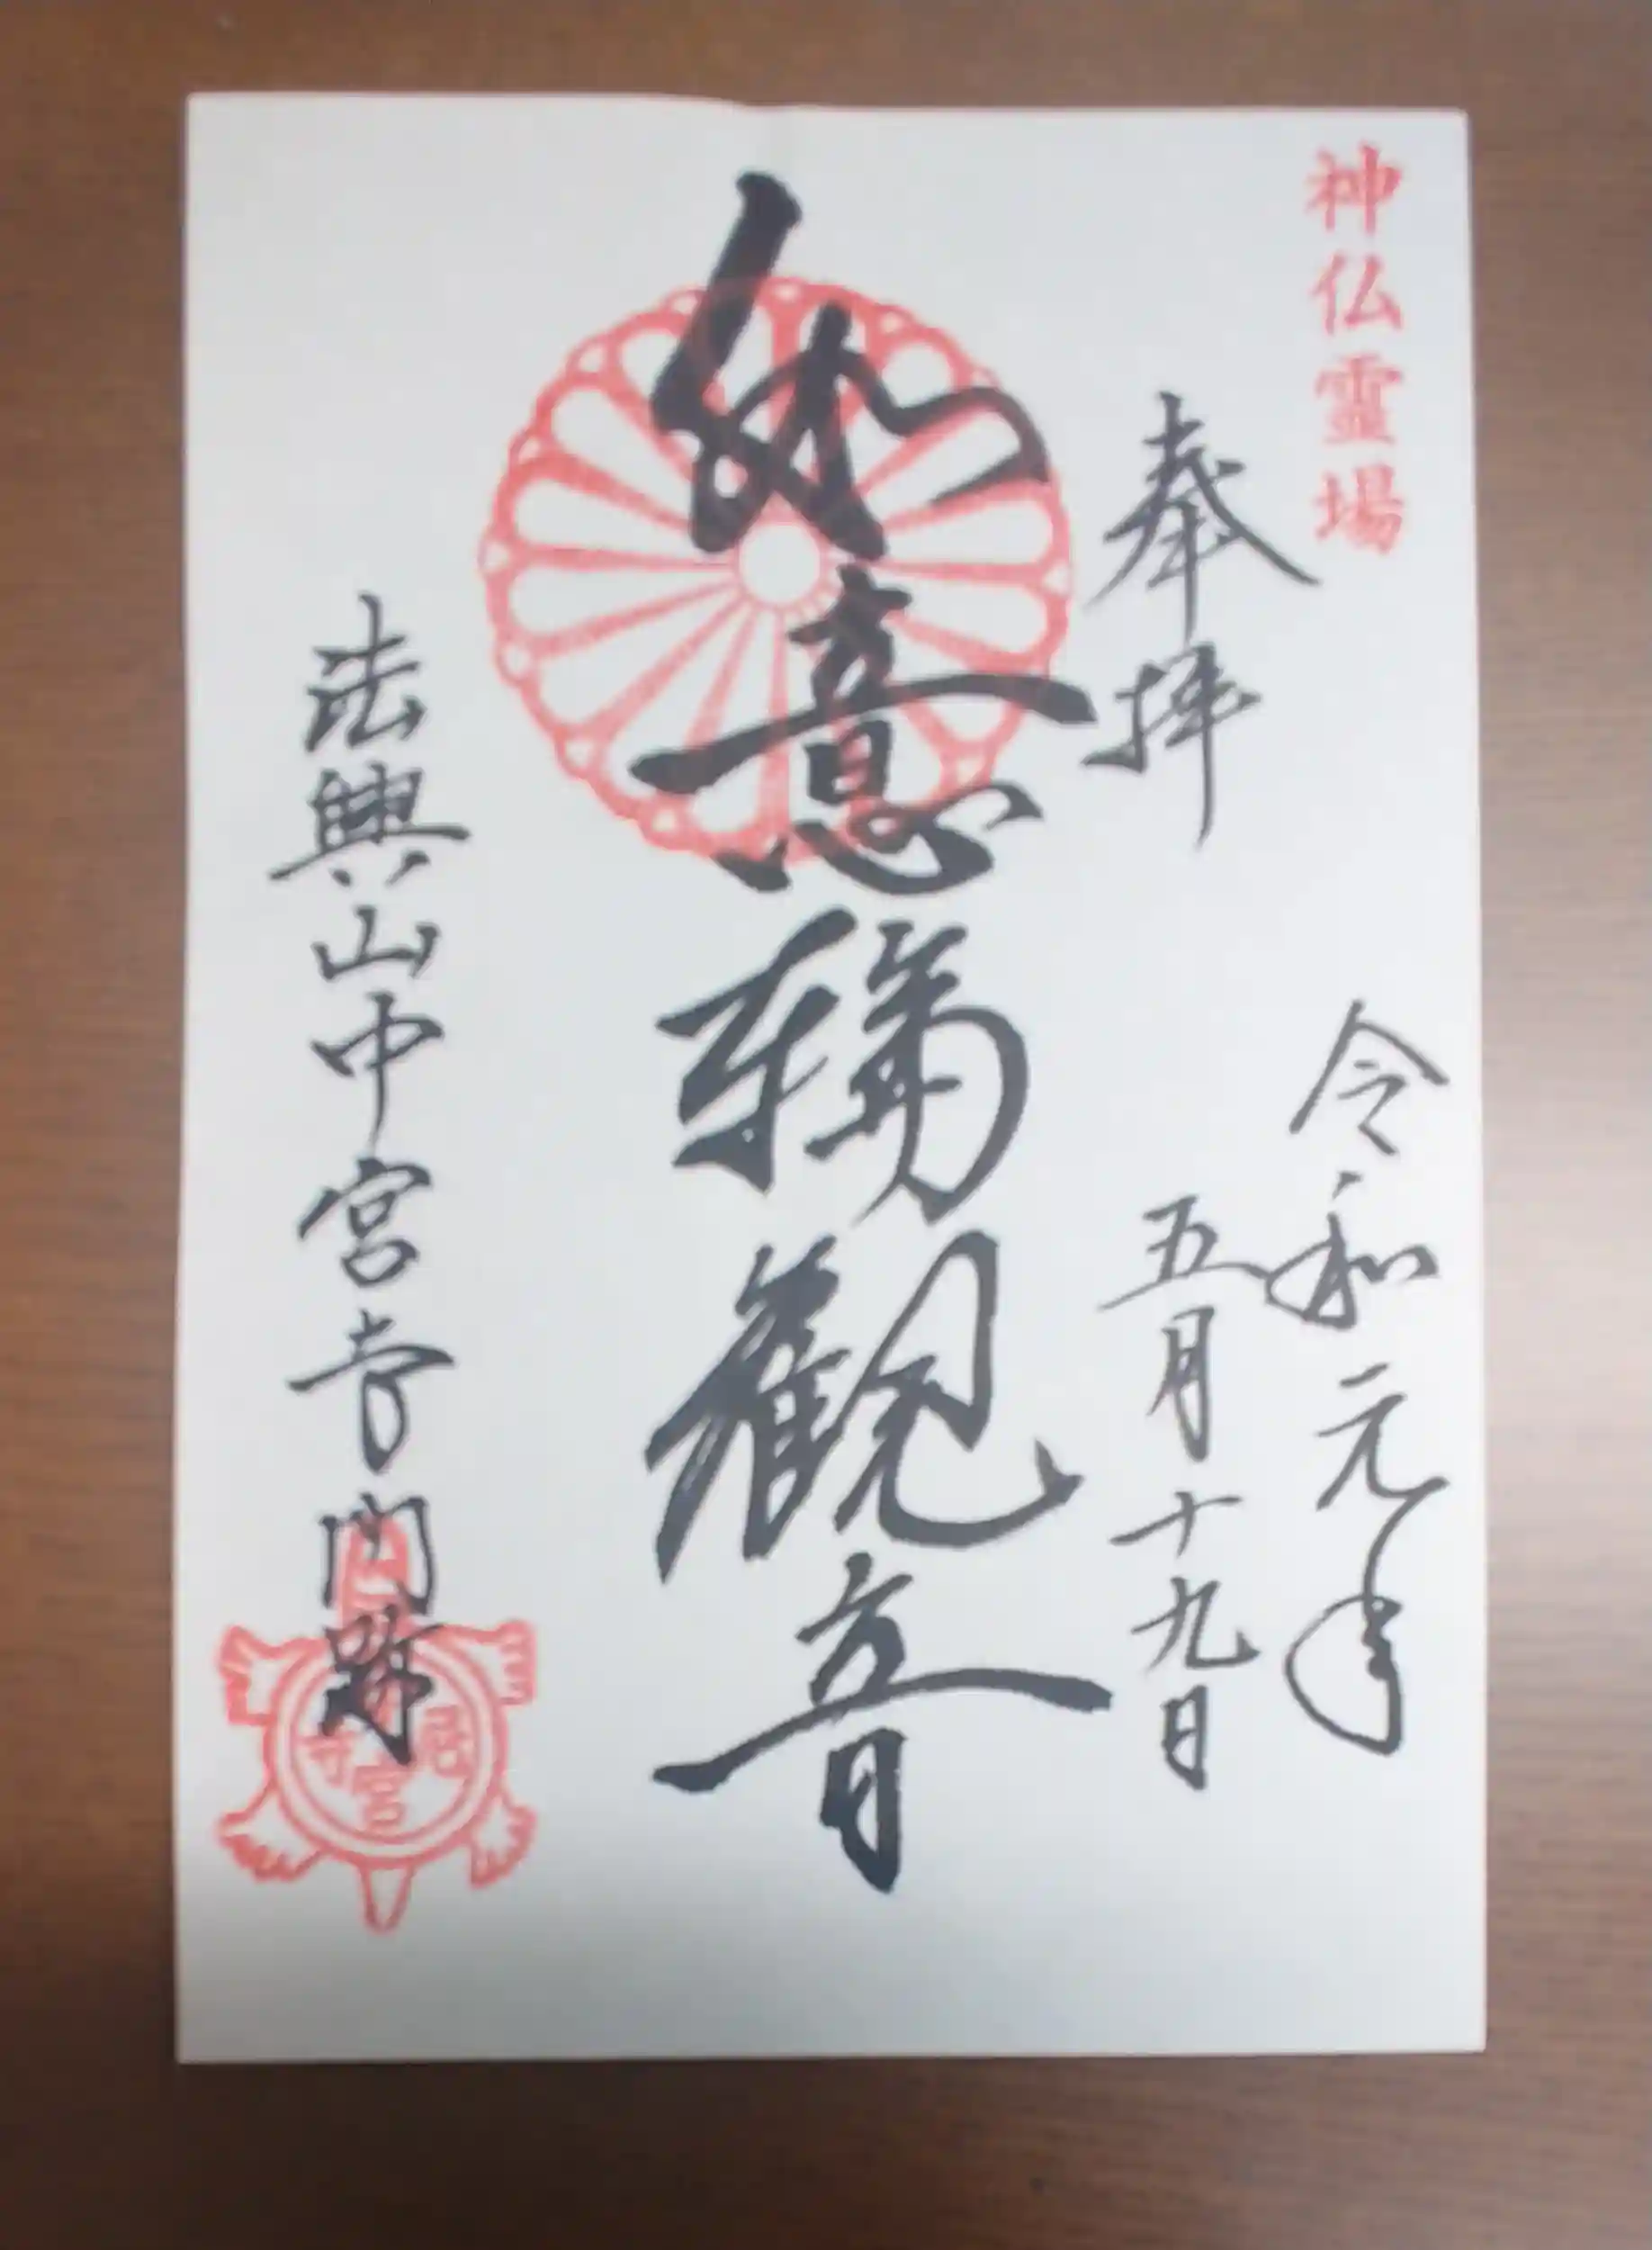 神仏霊場
奉拝
令和元年
五月十九日
如意輪觀音
法興山中宮寺門跡
宮寺